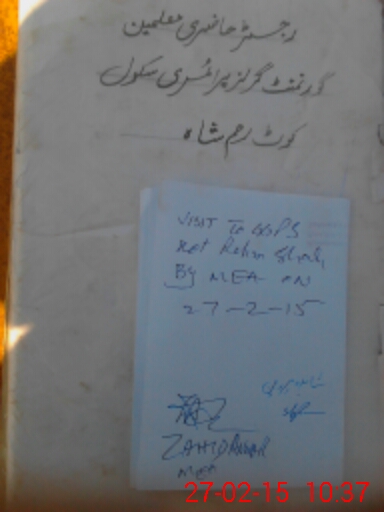 رجسٹر حاضری معلمین
گورنمنٹ گرلز پرائمری سکول
کوٹ رحم شاہ
VISIT To GGPS
Kot Rahm Shah
By MEA ON
27-2-15
ZAHID
MEA
27-02-15 10:37